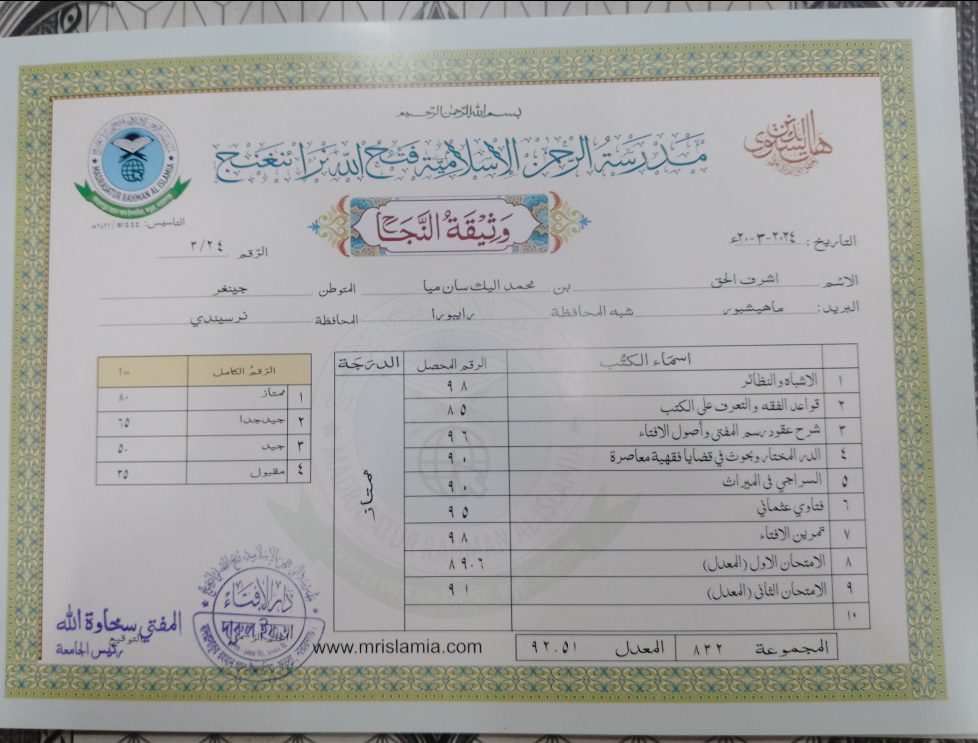 بسم الله الرحمن الرحيم
مدرسة الرحمن الإسلامية فتح الله نرائنغنج
MADRASATUR RAHMAN AL ISLAMIA
وَثِيْقَةُ النَّجَاحِ
التأسيس: ١٤٤٤ھ/٢٠٢٢م
التاريخ: ٢٠٢٤-٣-٢٠ء
الرقم ٢/٢٤
الاسم اشرف الحق بن محمد اليك سان ميا المتوطن جينغر
البريد: ماهيشبور شبه المحافظة رايبورا المحافظة نرسيندي
اسماء الكتب الرقم المحصل الدرجة
١ الاشباه والنظائر ٩٨
٢ قواعد الفقه والتعرف على الكتب ٨٥
٣ شرح عقود رسم المفتي وأصول الافتاء ٩٦
٤ الدر المختار وبحوث في قضايا فقهية معاصرة ٩٠
٥ السراجي في الميراث ٩٠
٦ فتاوي عثماني ٩٥
٧ تمرين الافتاء ٩٨
٨ الامتحان الاول (المعدل) ٨٩.٦
٩ الامتحان الثاني (المعدل) ٩١
١٠
ممتاز
المجموعة ٨٣٢ المعدل ٩٢.٥١
الرقم الكامل ١٠٠
١ ممتاز ٨٠
٢ جيد جدا ٦٥
٣ جيد ٥٠
٤ مقبول ٣٥
دار الإفتاء
দারুল ইফতা
المفتي سخاوة الله
التوقيع
رئيس الجامعة
www.mrislamia.com